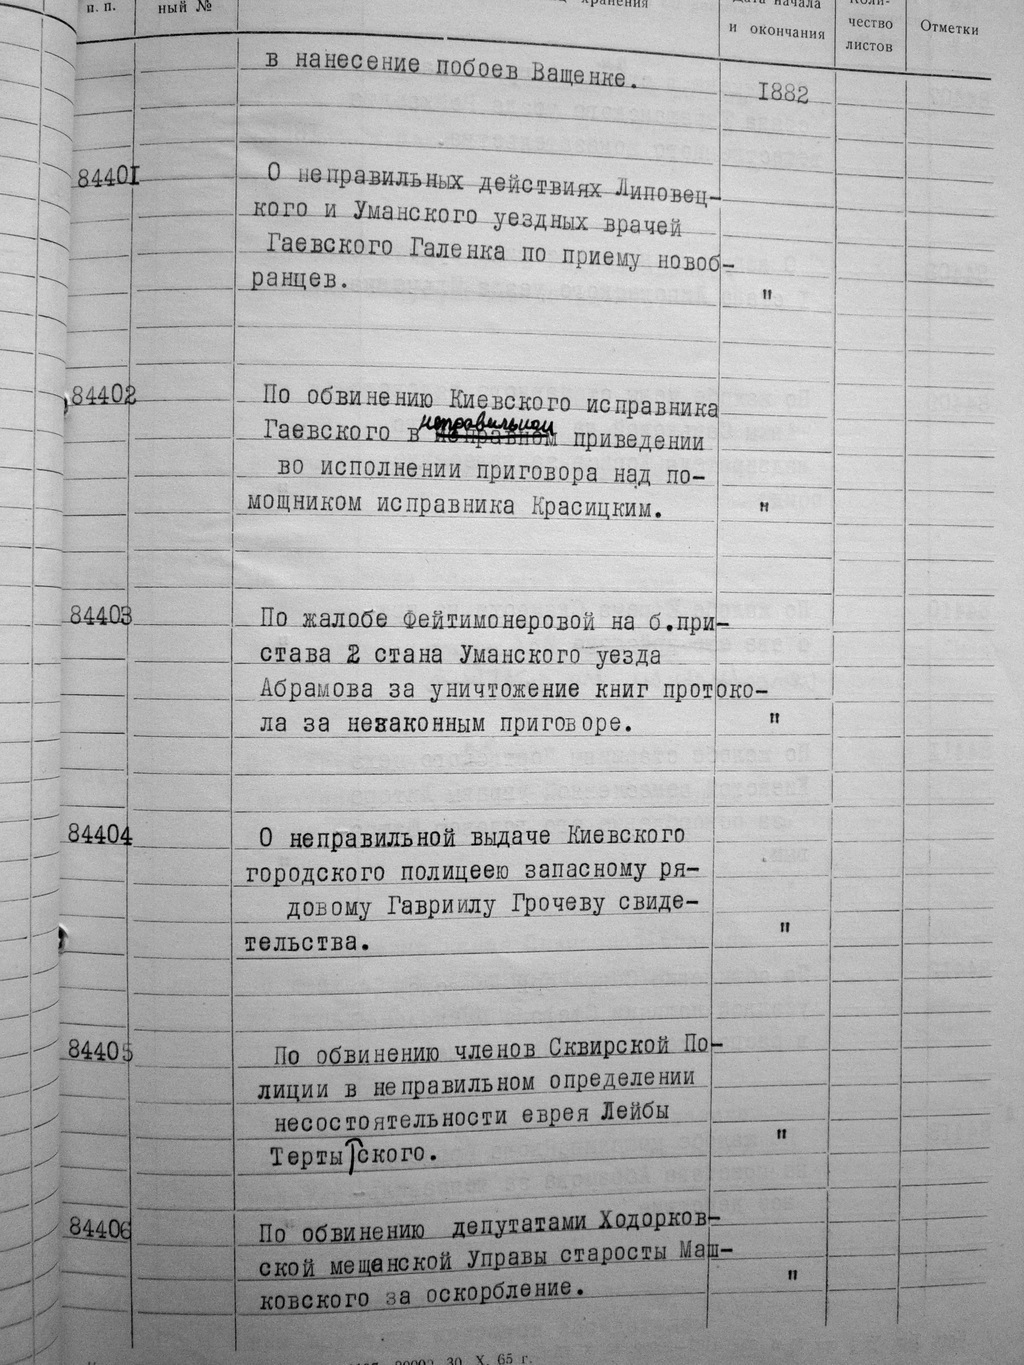 п. п.
ный №
хранения
Дата начала
и окончания
Коли-
чество
листов
Отметки
в нанесение побоев Ващенке.
1882
84401
О неправильных действиях Липовец-
кого и Уманского уездных врачей
Гаевского Галенка по приему новоб-
ранцев.
"
84402
По обвинению Киевского исправника
неправильном
Гаевского в исправном приведении
во исполнении приговора над по-
мощником исправника Красицким.
"
84403
По жалобе Фейтимонеровой на б.при-
става 2 стана Уманского уезда
Абрамова за уничтожение книг протоко-
ла за незаконным приговоре.
"
84404
О неправильной выдаче Киевского
городского полицеею запасному ря-
довому Гавриилу Грочеву свиде-
тельства.
"
84405
По обвинению членов Сквирской По-
лиции в неправильном определении
несостоятельности еврея Лейбы
Терты ского.
"
84406
По обвинению депутатами Ходорков-
ской мещанской Управы старосты Маш-
ковского за оскорбление.
"
30. X. 65 г.